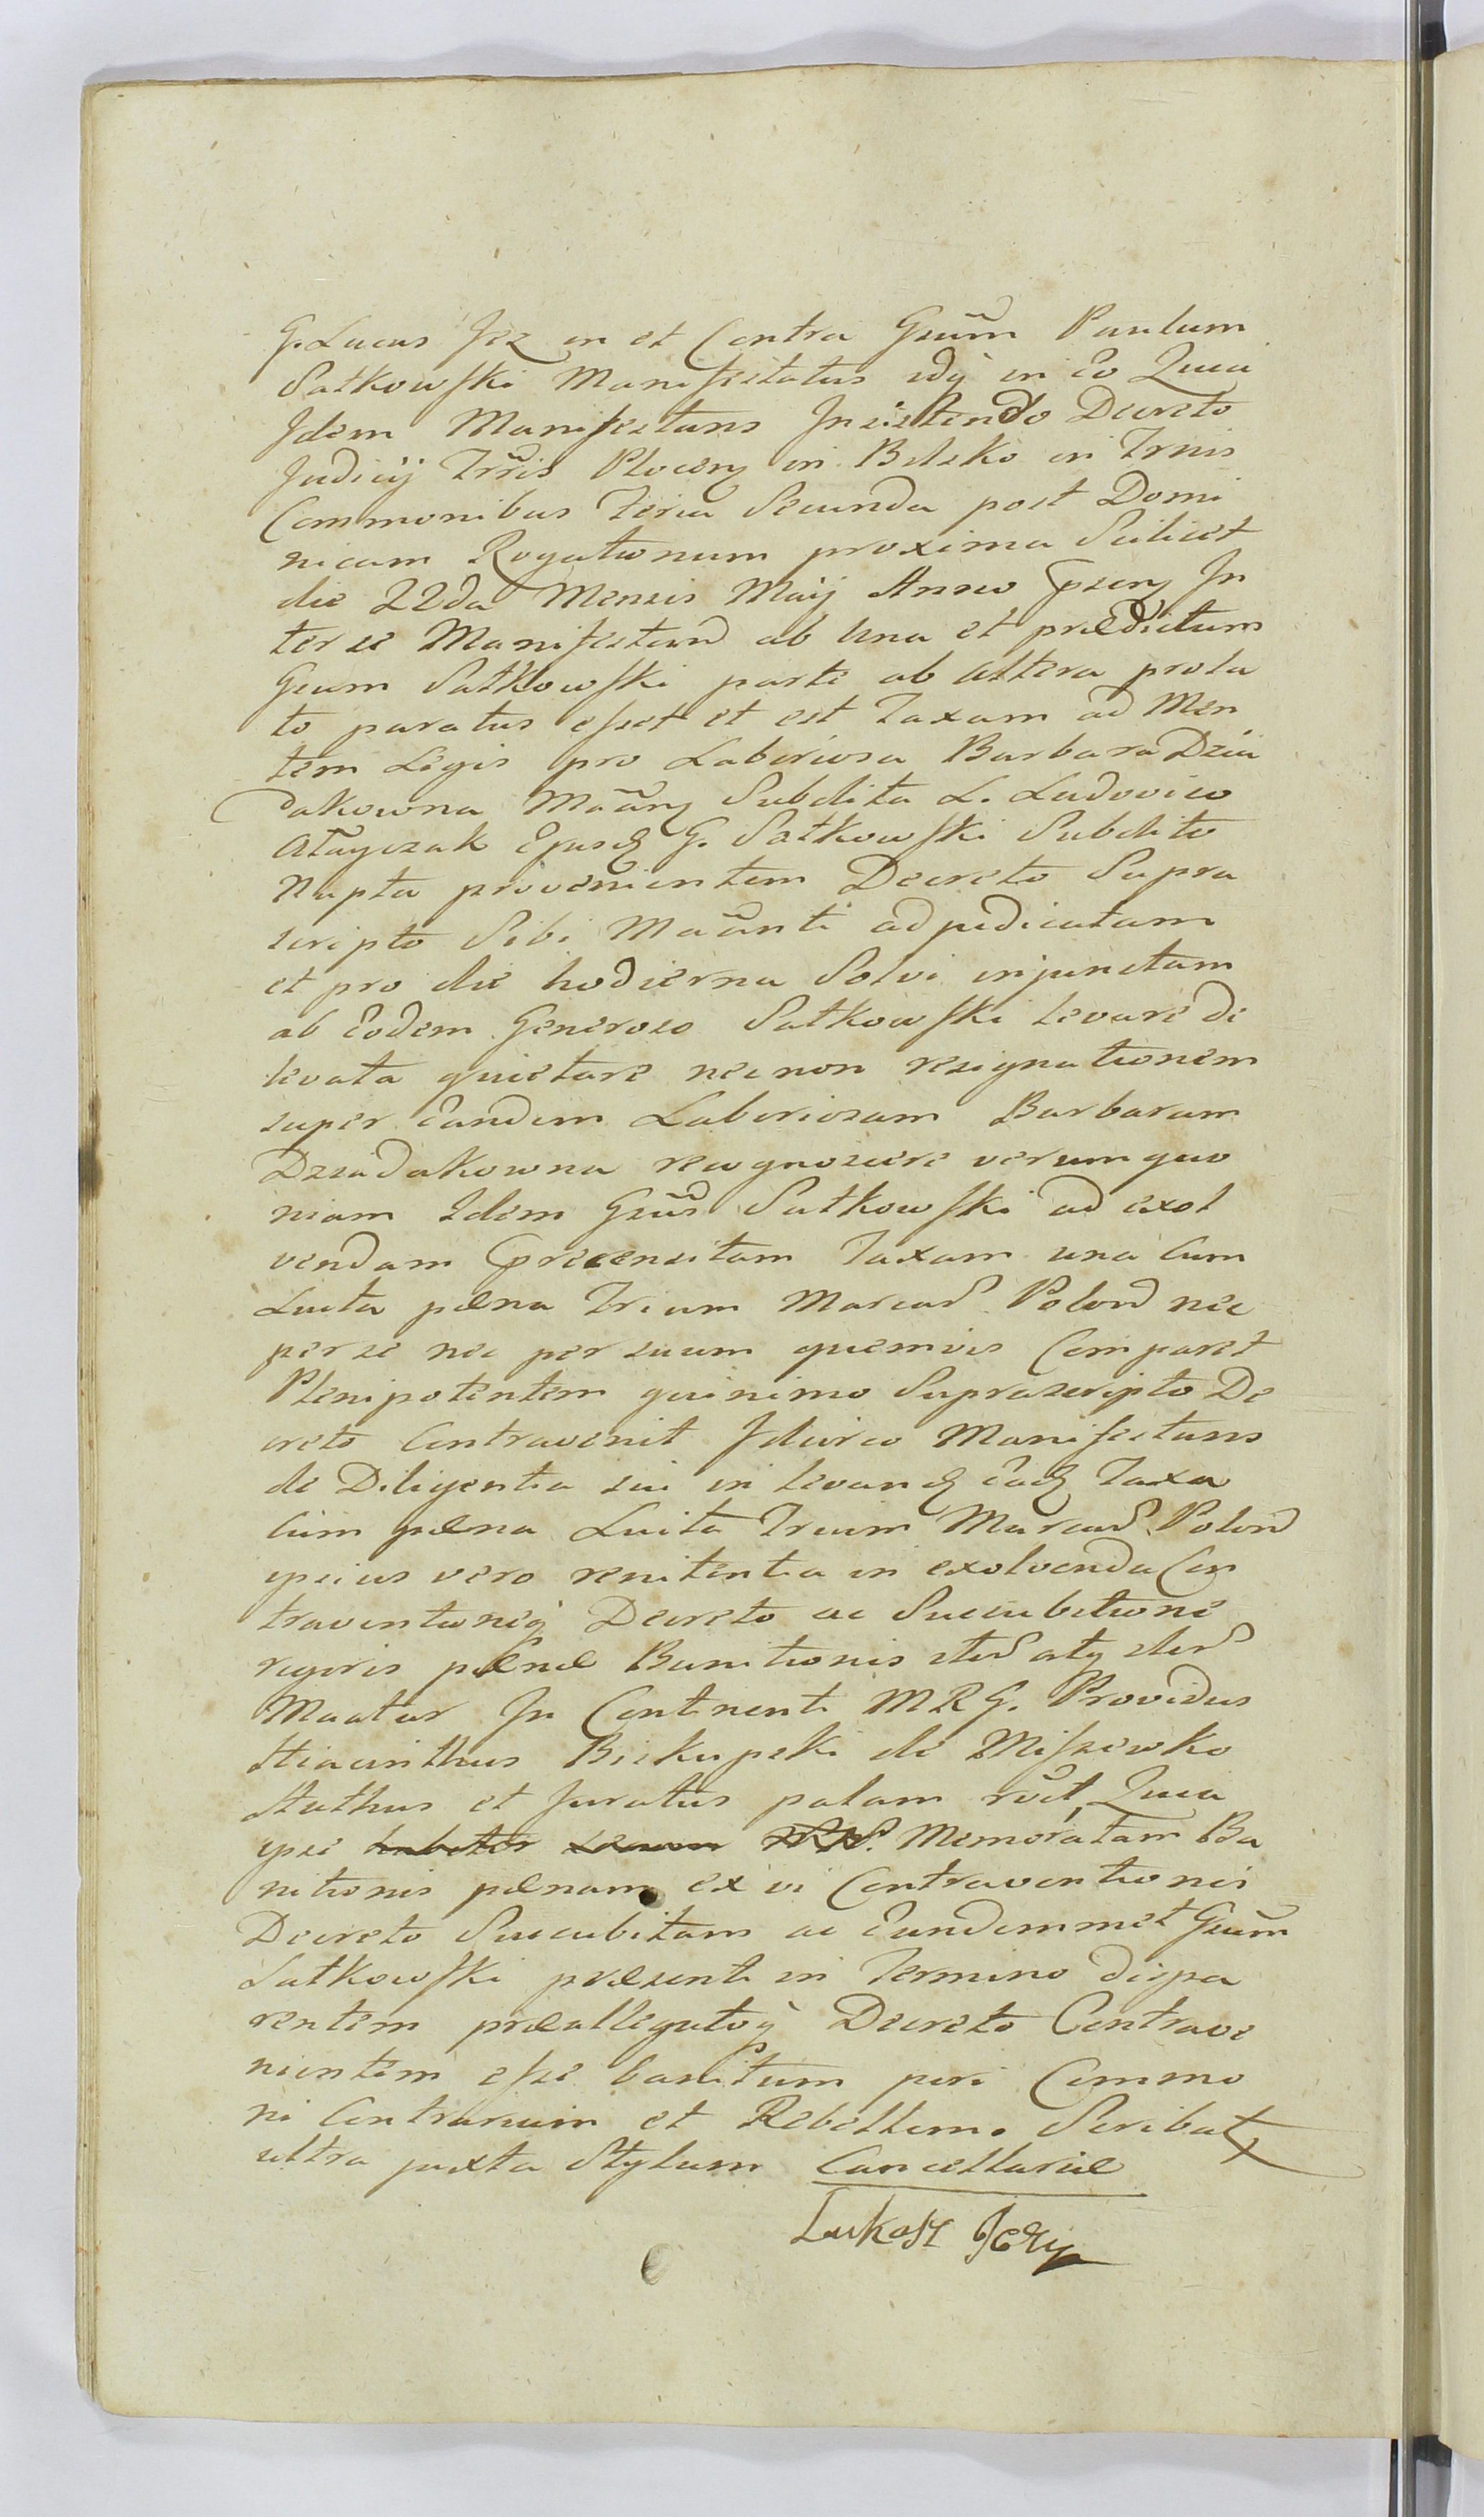 G. Lucas Jez in et Contra Gsũm Paulum
Satkowski Manifestatus idq̃ in Eo Quia
Idem Manifestans Insistendo Decreto
Judicij Trr̃is Plocen̄ in Bielsko in Trnis
Commonibus Feria Secunda post Domi
nicam Rogationum proxima Scilicet
die 22da Mensis Maij Anno Psen̄ In
ter se Manifestan̄ ab Una et prædictum
Gsum Satkowski parte ab altera prola
to paratus esset et est Taxam ad Men
tem Legis pro Laboriosa Barbara Dzia
dakowna Mãan̄ Subdita L. Ludovico
Atayczak Ejusd G. Satkowski Subdito
Nupta provenientem Decreto Supra
scripto Sibi Mãanti adjudicatam
et pro die hodierna Solvi injunctam
ab Eodem Generoso Satkowski levare de
levata quietare necnon resignationem
super Eandem Laboriosam Barbaram
Dziadakowna recognoscere verum quo
niam Idem Gsũs Satkowski ad exol
vendam Precensitam Taxam una Cum
Luita pœna Trium Marcar̃ Polon̄ nec
per se nec per suum quemvis Comparet
Plenipotentem quinimo Suprascripto De
creto Contravenit Idcirco Manifestans
de Diligentia sui in levand Ead Taxa
Cum pœna Luita Trium Marcar̃ Polon̄
ipsius vero renitentia in exolvenda Con
traventioneq̃ Decreto ac Succubitione
rigoris pœnæ Banitionis iter̃ atq̃ iter̃
Maatur In Continenti MRG. Providus
Hiacinthus Biskupski de Miszewko
Authus et Juratus palam rc̃t Quia
ipse Memoratam Ba
nitionis pœnam ex vi Contraventionis
Decreto Succubitam ac Eundemmet Gsũm
Satkowski præsenti in Termino dispa
rentem præallegatoq̃ Decreto Contrave
nientem esse banitum juri Commo
ni Contrarium et Rebellem. Scribat
ultra juxta Stylum Cancellariæ
Łukasz Jeży